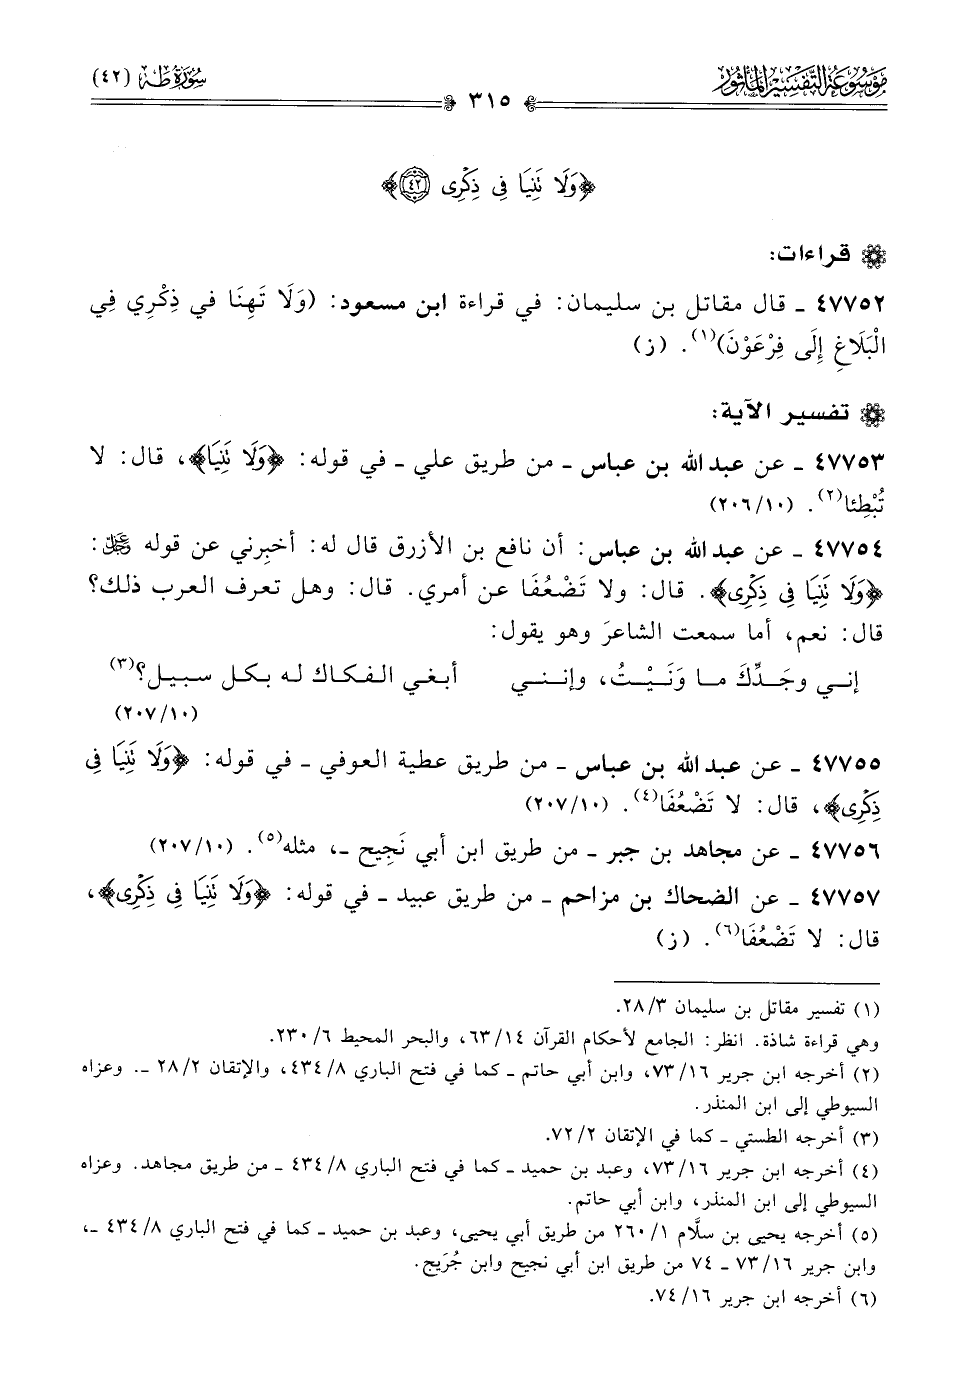 موسوعة التفسير المأثور
سورة طه (٤٢)
٣١٥
﴿وَلَا تَنِيَا فِى ذِكْرِى ٤٢﴾
قراءات:
٤٧٧٥٢ ـ قال مقاتل بن سليمان: في قراءة ابن مسعود: (وَلَا تَهِنَا فِي ذِكْرِي فِي
الْبَلَاغِ إِلَى فِرْعَوْنَ)(١). (ز)
تفسير الآية:
٤٧٧٥٣ ـ عن عبد الله بن عباس ـ من طريق علي ـ في قوله: ﴿وَلَا تَنِيَا﴾، قال: لا
تُبْطِئا(٢). (٢٠٦/١٠)
٤٧٧٥٤ ـ عن عبد الله بن عباس: أن نافع بن الأزرق قال له: أخبِرني عن قوله عز وجل:
﴿وَلَا تَنِيَا فِى ذِكْرِى﴾. قال: ولا تَضْعُفَا عن أمري. قال: وهل تعرف العرب ذلك؟
قال: نعم، أما سمعت الشاعرَ وهو يقول:
إنـي وجَـدِّكَ مـا وَنَـيْـتُ، وإنـنـي أبـغـي الـفـكـاك لـه بـكـل سـبـيـل؟(٣)
(٢٠٧/١٠)
٤٧٧٥٥ ـ عن عبد الله بن عباس ـ من طريق عطية العوفي ـ في قوله: ﴿وَلَا تَنِيَا فِى
ذِكْرِى﴾، قال: لا تَضْعُفَا(٤). (٢٠٧/١٠)
٤٧٧٥٦ ـ عن مجاهد بن جبر ـ من طريق ابن أبي نَجِيح ـ، مثله(٥). (٢٠٧/١٠)
٤٧٧٥٧ ـ عن الضحاك بن مزاحم ـ من طريق عبيد ـ في قوله: ﴿وَلَا تَنِيَا فِى ذِكْرِى﴾،
قال: لا تَضْعُفَا(٦). (ز)
(١) تفسير مقاتل بن سليمان ٢٨/٣.
وهي قراءة شاذة. انظر: الجامع لأحكام القرآن ٦٣/١٤، والبحر المحيط ٢٣٠/٦.
(٢) أخرجه ابن جرير ٧٣/١٦، وابن أبي حاتم ـ كما في فتح الباري ٤٣٤/٨، والإتقان ٢٨/٢ ـ. وعزاه
السيوطي إلى ابن المنذر.
(٣) أخرجه الطستي ـ كما في الإتقان ٧٢/٢.
(٤) أخرجه ابن جرير ٧٣/١٦، وعبد بن حميد ـ كما في فتح الباري ٤٣٤/٨ ـ من طريق مجاهد. وعزاه
السيوطي إلى ابن المنذر، وابن أبي حاتم.
(٥) أخرجه يحيى بن سلَّام ٢٦٠/١ من طريق أبي يحيى، وعبد بن حميد ـ كما في فتح الباري ٤٣٤/٨ ـ،
وابن جرير ٧٣/١٦ ـ ٧٤ من طريق ابن أبي نجيح وابن جُرَيج.
(٦) أخرجه ابن جرير ٧٤/١٦.